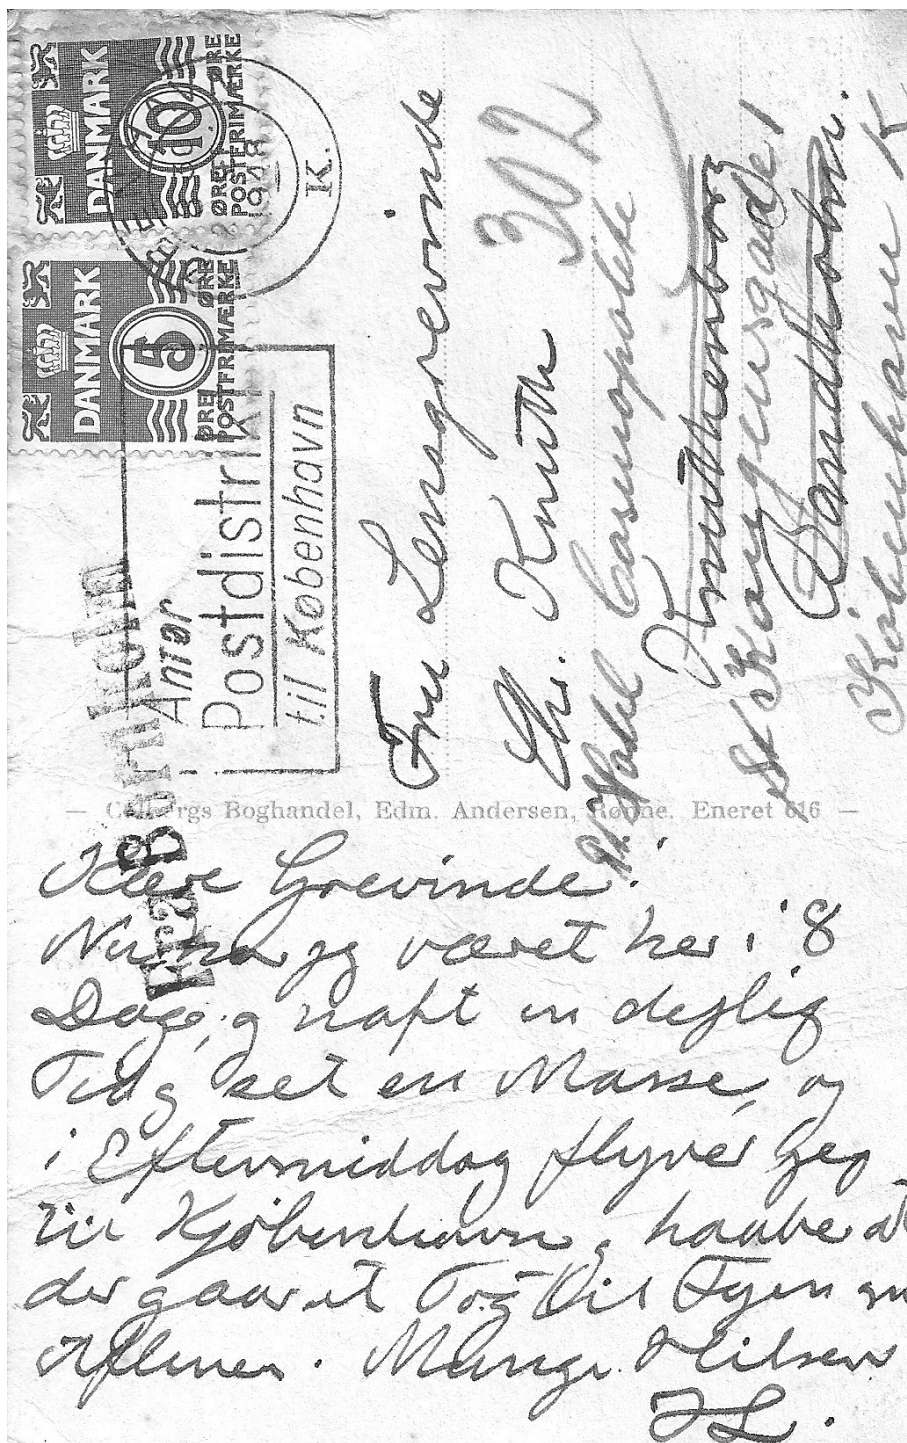 DANMARK
10
ØRE ØRE
POSTFRIMÆRKE
DANMARK
5
ØRE ØRE
POSTFRIMÆRKE
1948
K.
Anfør
Postdistrikt
til København
Fra Bornholm
Fru Lensgrevinde
Chr. Knuth
302
Hotel Cosmopolite
Knuthenborg
St Kongensgade 1
Bandholm.
København K
— Colbergs Boghandel, Edm. Andersen, Rønne. Eneret 616 —
Kære Grevinde!
Nu har jeg været her i 8
Dage, og haft en dejlig
Tid og set en Masse, og
i Eftermiddag flyver jeg
til Kjøbenhavn, haaber at
der gaar et Tog til Fyen
Aften. Mange Hilsen